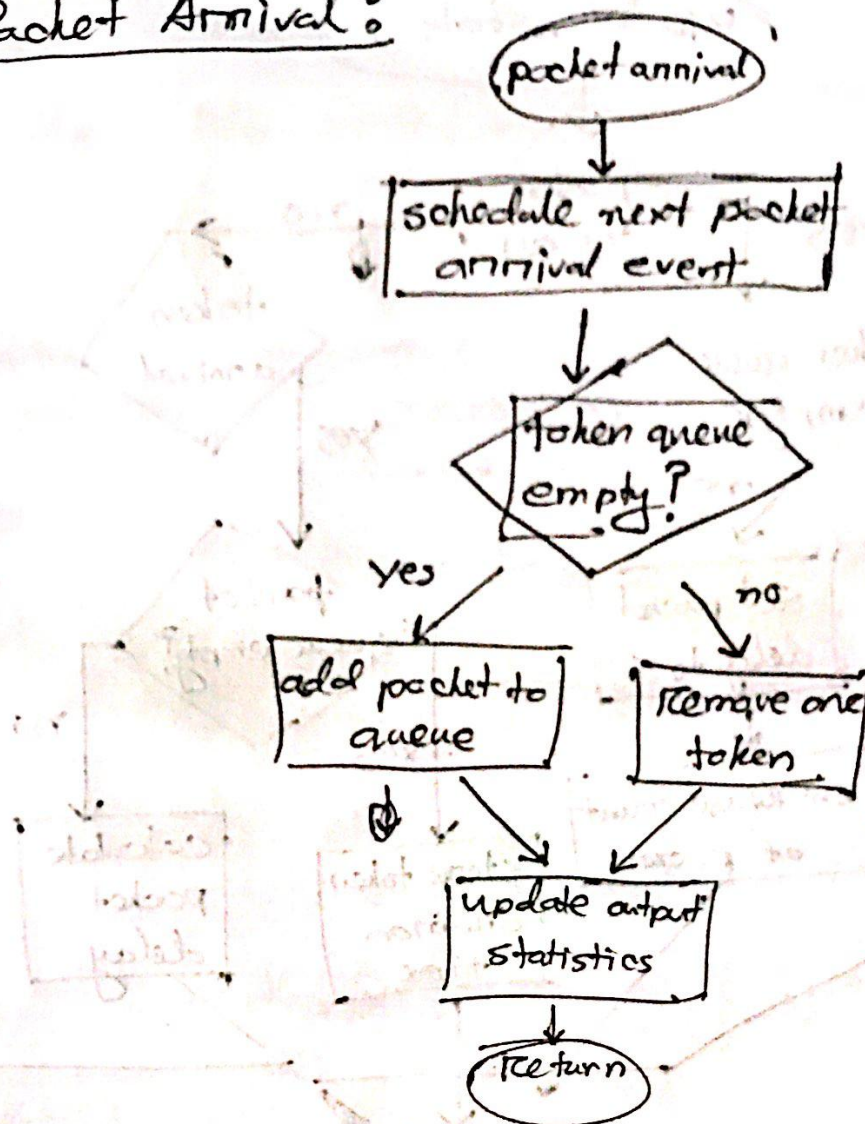 Packet Arrival:
packet arrival
schedule next packet
arrival event
token queue
empty?
yes
no
add packet to
queue
Remove one
token
update output
statistics
Return